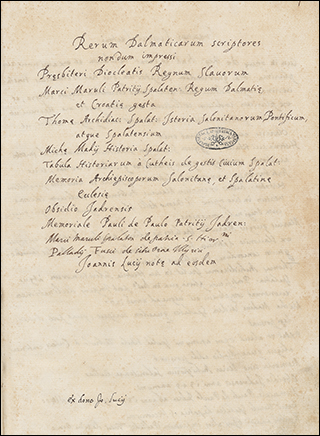 Rerum Dalmaticarum scriptores
nondum impressi
Presbiteri Diocleatis Regnum Slavorum
Marci Maruli Patritij Spalaten: Regum Dalmatię
et Croatię gesta
Thomę Archidiac: Spalat: Istoria Salonitanorum Pontificum,
atque Spalatensium
Michę Madij Historia Spalat:
Tabula Historiarum à Cutheis de gestis Civium Spalat:
Memoria Archiepiscoporum Salonitanę et Spalatinę
Eclesię
Obsidio Jadrensis
Memoriale Pauli de Paulo Patritij Jadren:
Marci Maruli Spalaten de patria S.
Palladij Fusci de situ orae Illyrici
Joannis Lucij notę ad eosdem
ex dono Jo. Lucij